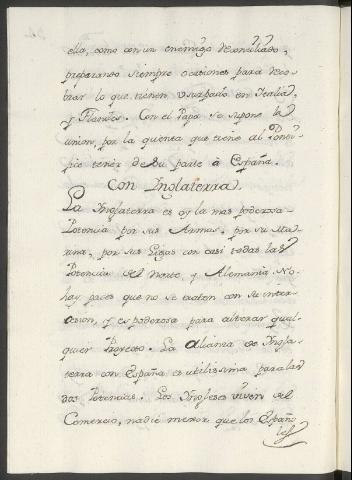 ella, como con un enemigo reconciliado,
preparando siempre ocasiones para reco-
brar lo que tienen usurpado en Italia,
y Flandes. Con el Papa se supone la
union, por la quenta que tiene al Ponti-
fice tener de su parte à España.
Con Inglaterra.
La Inglaterra es oy la mas poderosa
Potencia por sus Armas, por su Ma-
rina, por sus Ligas con casi todas las
Potencias del Norte, y Alemania. No
hay paces que no se traten con su inter-
cesion, y es poderosa para alterar qual-
quier Proyecto. La Alianza de Ingla-
terra con España es utilissima para las
dos Potencias. Los Ingleses viven del
Comercio, nadie mejor que los Españo
les